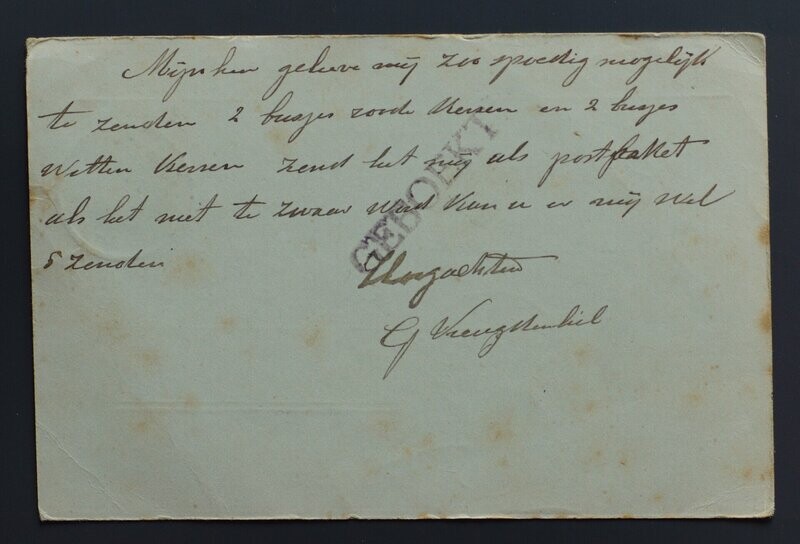 Mijnheer gelieve mij zoo spoedig mogelijk
te zenden 2 busjes roode Kersen en 2 busjes
Witten Kersen zend het mij als postpakket
als het niet te zwaar word kan u er mij wel
5 zenden
GEBOEKT
Hoogachtend
G